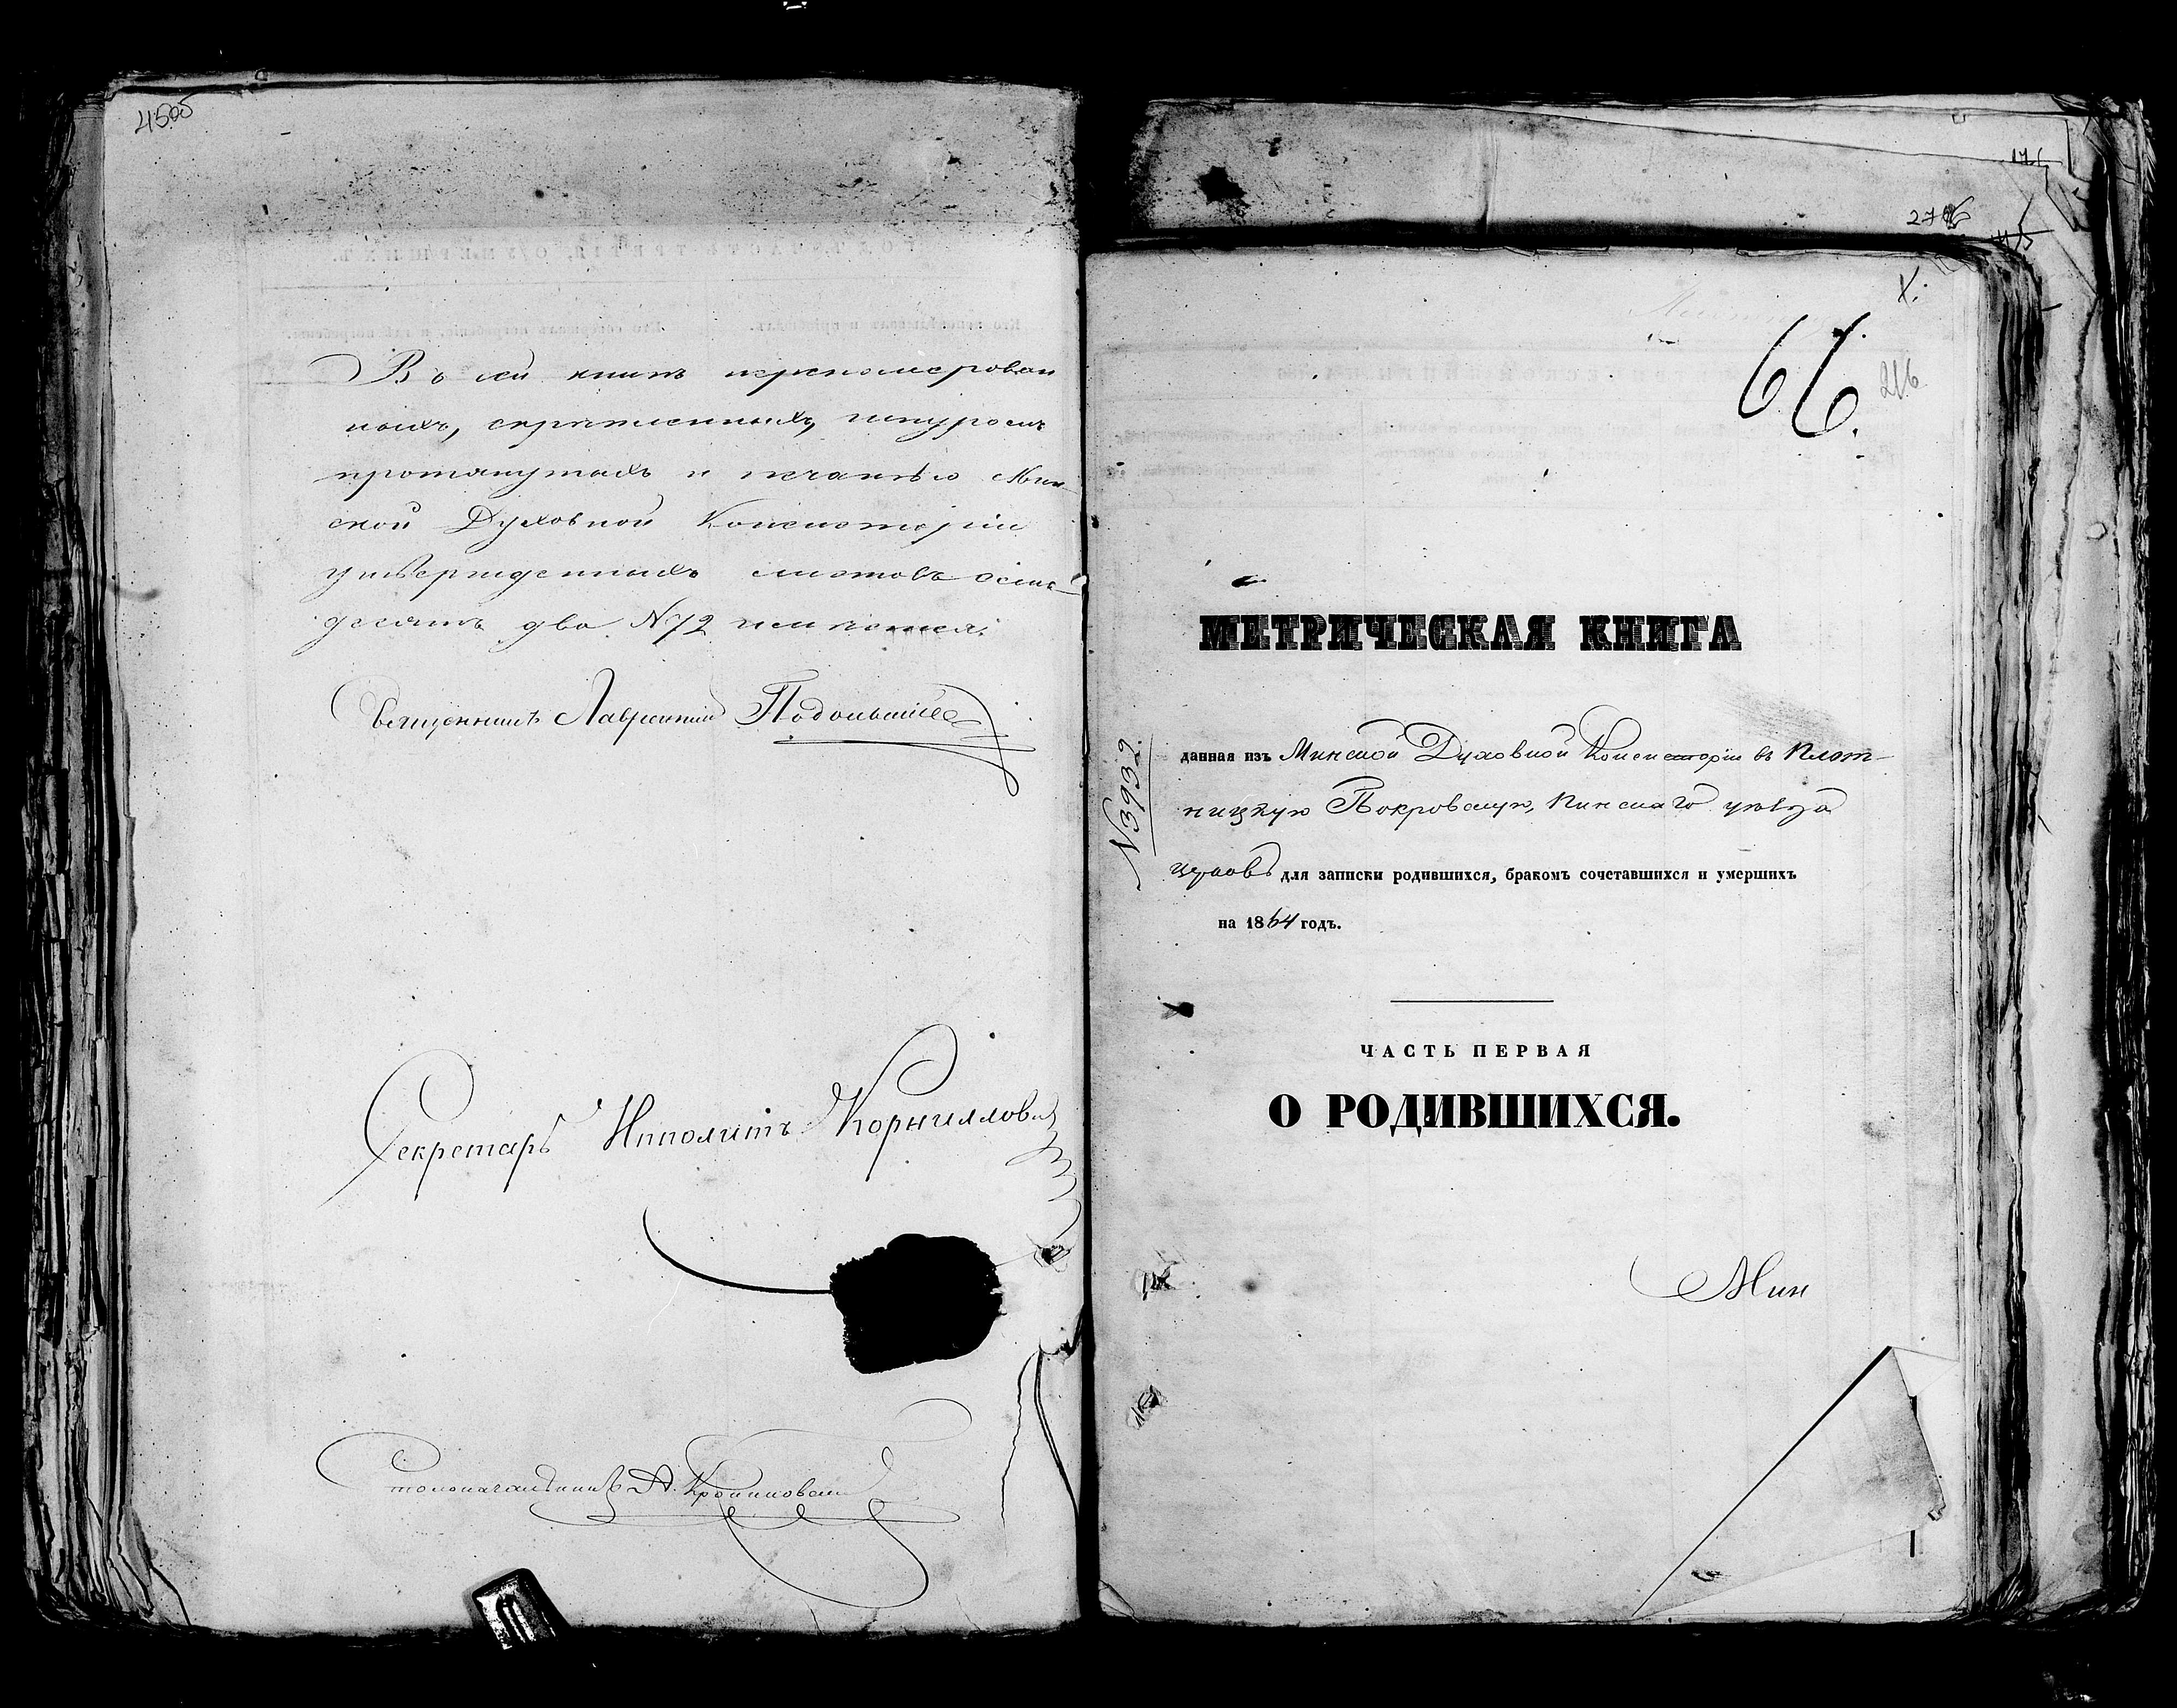 4505
Въ сей книгѣ перенумерован
ныхъ, скрѣпленныхъ, шнуромъ
протянутыхъ и печатью Мин-
ской Духовной Консисторіи
утвержденныхъ листовъ осмь-
десятъ два N 72
Священникъ Лаврентій
Секретарь Ипполитъ Корнилловъ
Столоначальникъ А.
276
66.
216
МЕТРИЧЕСКАЯ КНИГА
N 3932
данная изъ Минской Духовной Консисторіи въ Плот-
ницкую Покровскую, Пинскаго уѣзда
церковь для записки родившихся, бракомъ сочетавшихся и умершихъ
на 1864 годъ.
ЧАСТЬ ПЕРВАЯ
О РОДИВШИХСЯ.
Мин